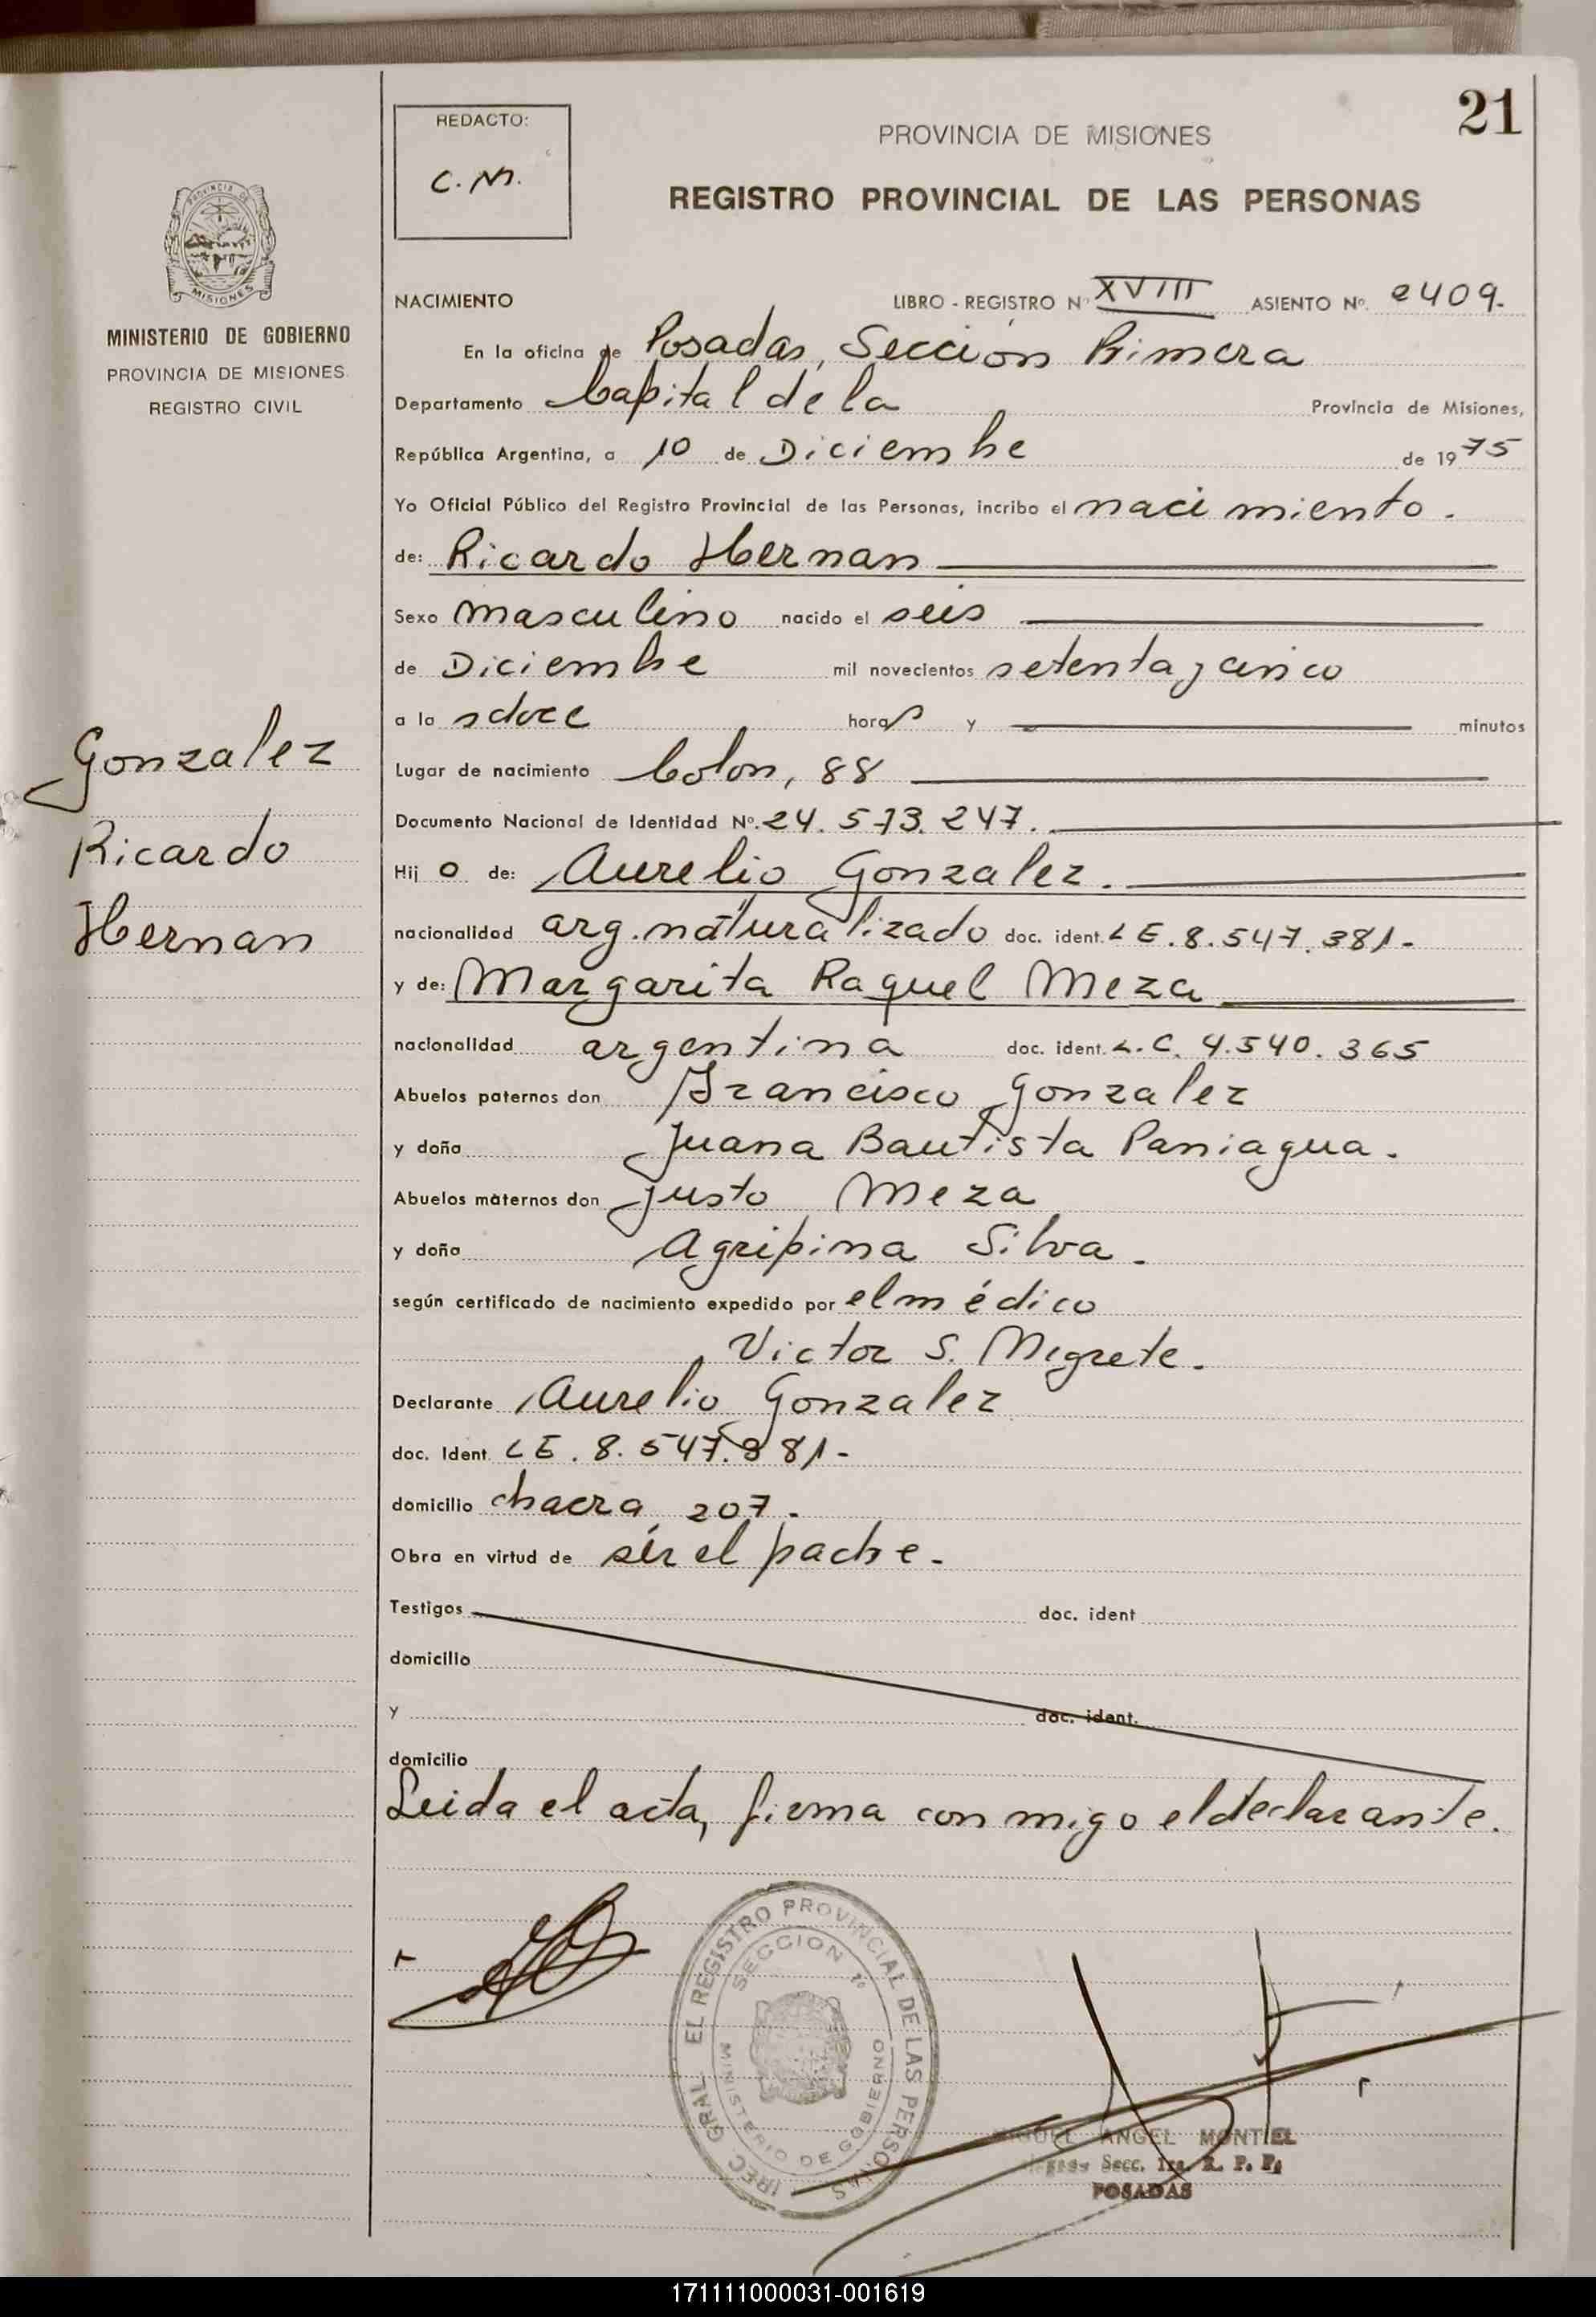 21
REDACTO:
C. M.
PROVINCIA DE MISIONES
REGISTRO PROVINCIAL DE LAS PERSONAS
PROVINCIA DE
MISIONES
MINISTERIO DE GOBIERNO
PROVINCIA DE MISIONES
REGISTRO CIVIL
NACIMIENTO LIBRO - REGISTRO Nº XVIII ASIENTO Nº. 2409.
En la oficina de Posadas, Sección Primera
Departamento Capital de la Provincia de Misiones,
República Argentina, a 10 de Diciembre de 1975
Yo Oficial Público del Registro Provincial de las Personas, incribo el nacimiento.
de: Ricardo Hernan
Sexo masculino nacido el seis
de Diciembre mil novecientos setenta y cinco
a la s doce horas y minutos
Lugar de nacimiento Colon, 88
Documento Nacional de Identidad Nº. 24.573.247.
Hij o de: Aurelio Gonzalez.
nacionalidad arg. naturalizado doc. ident. LE. 8.547.381-
y de: Margarita Raquel Meza
nacionalidad argentina doc. ident. L.C. 4.540.365
Abuelos paternos don Francisco Gonzalez
y doña Juana Bautista Paniagua.
Abuelos maternos don Justo Meza
y doña Agripina Silva.
según certificado de nacimiento expedido por el médico
Victor S. Negrete.
Declarante Aurelio Gonzalez
doc. Ident. LE. 8.547.381-
domicilio chacra 207.
Obra en virtud de ser el padre.
Testigos doc. ident
domicilio
y doc. ident.
domicilio
Leida el acta, firma conmigo el declarante.
Gonzalez
Ricardo
Hernan
EL REGISTRO PROVINCIAL DE LAS PERSONAS
SECCION 1º
MINISTERIO DE GOBIERNO
MIGUEL ANGEL MONTIEL
Secc. 1ra. R. P. P.
POSADAS
171111000031-001619